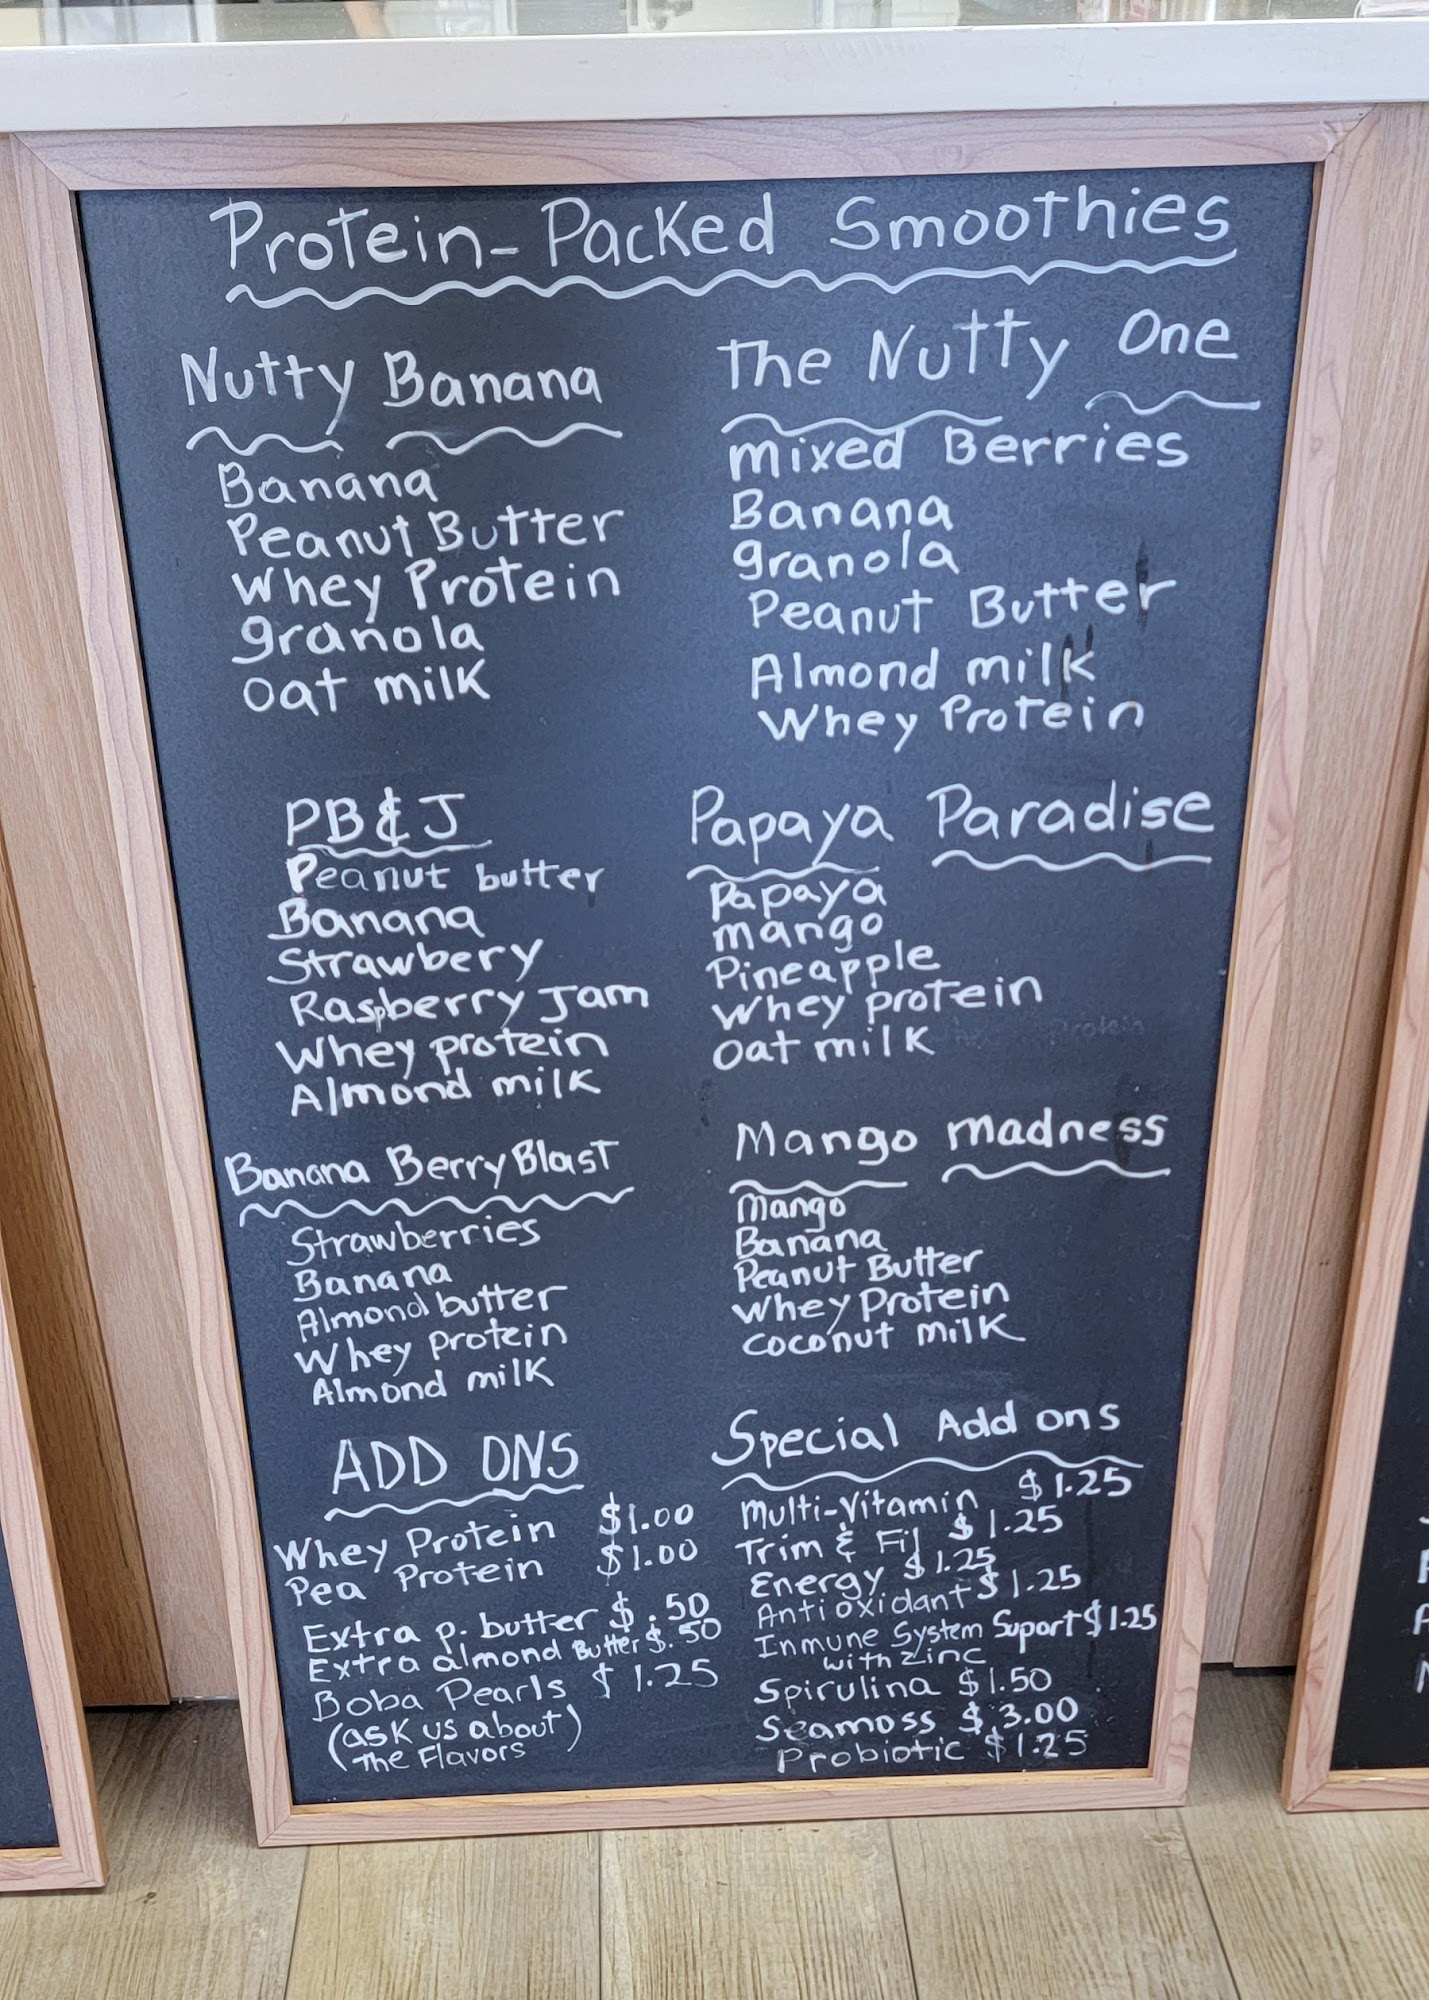 Protein-Packed Smoothies
Nutty Banana
Banana
Peanut Butter
Whey Protein
granola
oat milk
The Nutty One
mixed Berries
Banana
granola
Peanut Butter
Almond milk
Whey Protein
PB & J
Peanut butter
Banana
Strawbery
Raspberry Jam
Whey protein
Almond milk
Papaya Paradise
Papaya
mango
Pineapple
Whey protein
oat milk
Banana Berry Blast
Strawberries
Banana
Almond butter
Whey Protein
Almond milk
Mango madness
Mango
Banana
Peanut Butter
Whey Protein
coconut milk
ADD ONS
Whey Protein $1.00
Pea Protein $1.00
Extra p. butter $.50
Extra almond Butter $.50
Boba Pearls $1.25
(ask us about
the Flavors)
Special Add ons
Multi-Vitamin $1.25
Trim & Fit $1.25
Energy $1.25
Antioxidant $1.25
Inmune System Suport $1.25
with zinc
Spirulina $1.50
Seamoss $3.00
Probiotic $1.25